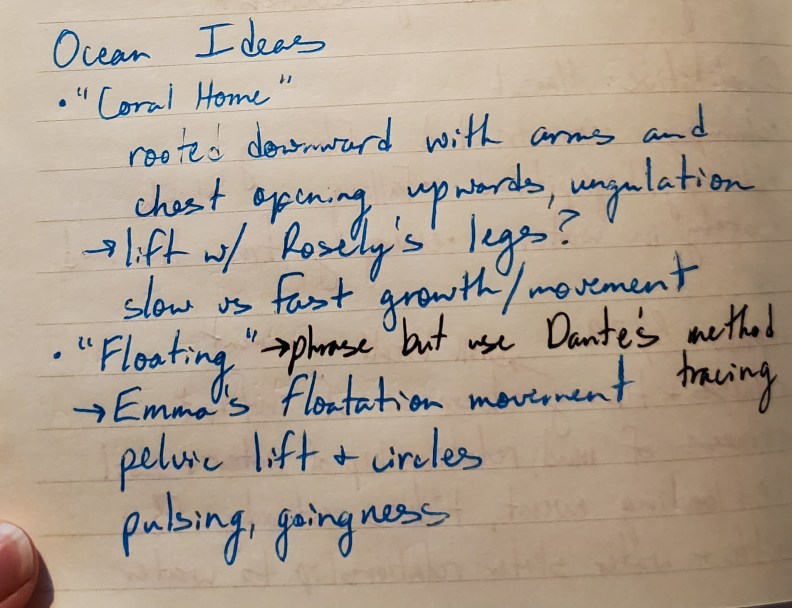 Ocean Ideas
• "Coral Home"
rooted downward with arms and
chest opening upwards, ungulation
→ lift w/ Rosely's legs?
slow vs fast growth/movement
• "Floating" → phrase but use Dante's method
tracing
→ Emma's floatation movement
pelvic lift + circles
pulsing, goingness